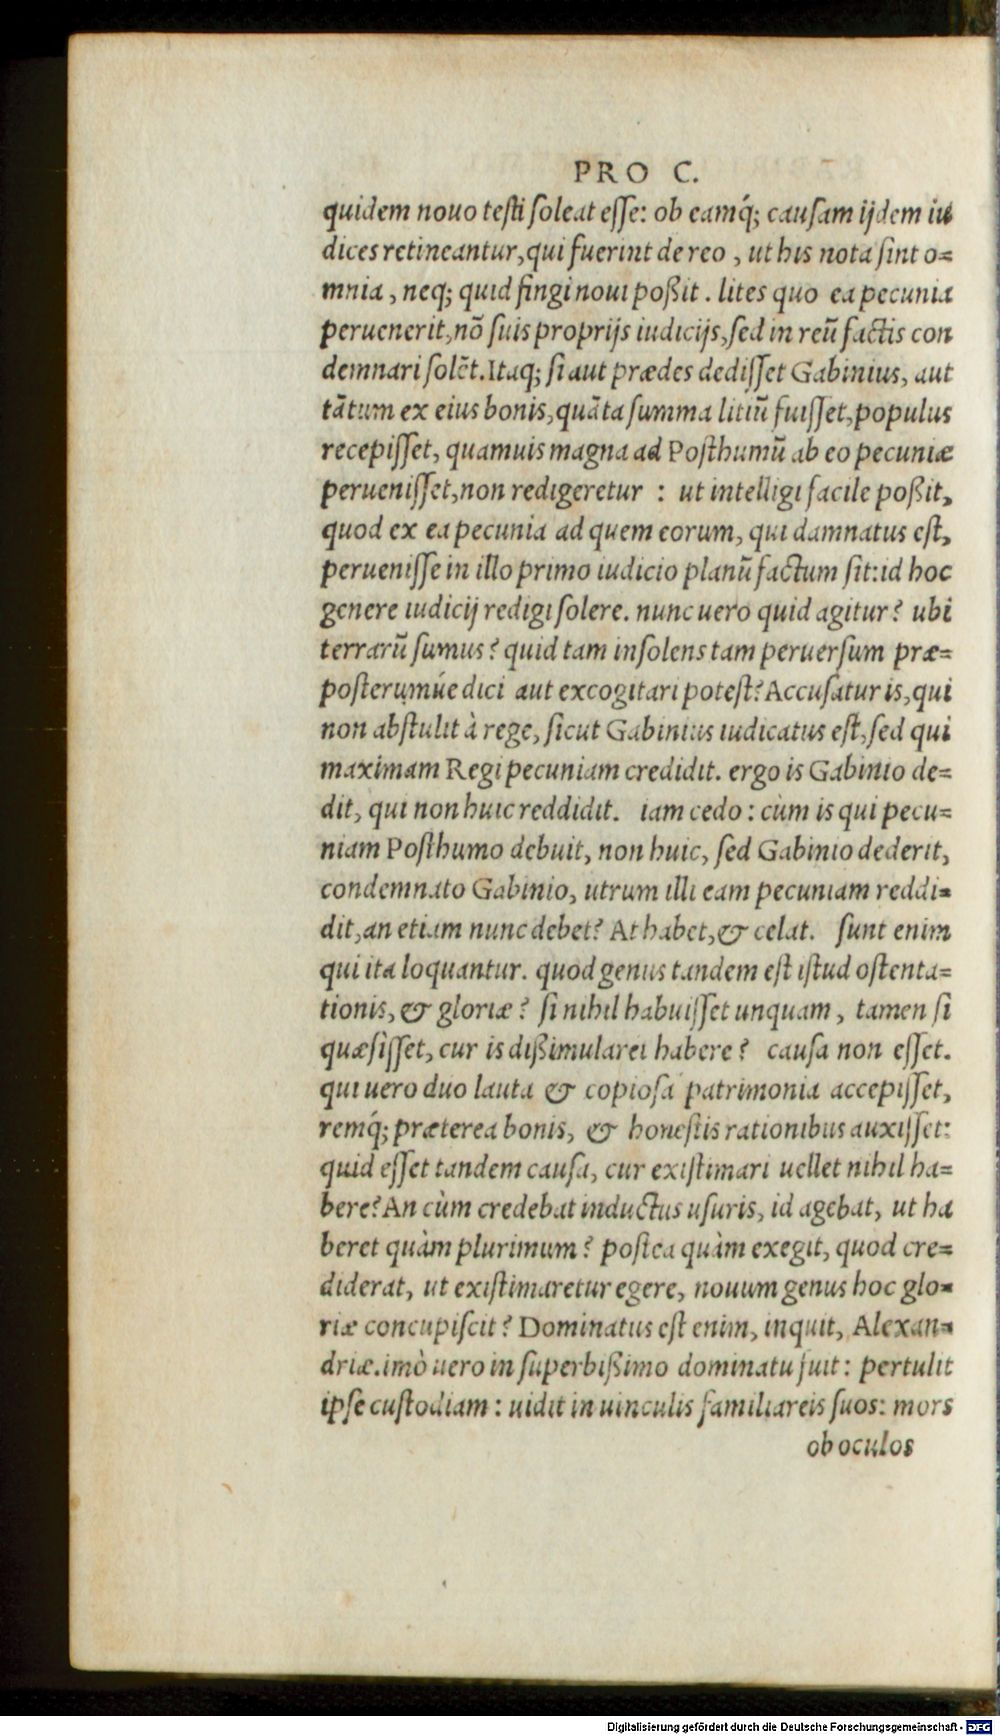 PRO C.
quidem nouo testi soleat esse: ob eamq́; causam ijdem iu
dices retineantur, qui fuerint de reo, ut his nota sint o=
mnia, neq; quid fingi noui poßit. lites quo ea pecunia
peruenerit, nō suis proprijs iudicijs, sed in reū factis con
demnari solēt. Itaq; si aut prædes dedisset Gabinius, aut
tātum ex eius bonis, quāta summa litiū fuisset, populus
recepisset, quamuis magna ad Posthumū ab eo pecuniæ
peruenisset, non redigeretur : ut intelligi facile poßit,
quod ex ea pecunia ad quem eorum, qui damnatus est,
peruenisse in illo primo iudicio planū factum sit: id hoc
genere iudicij redigi solere. nunc uero quid agitur? ubi
terrarū sumus? quid tam insolens tam peruersum præ=
posterumúe dici aut excogitari potest? Accusatur is, qui
non abstulit à rege, sicut Gabinius iudicatus est, sed qui
maximam Regi pecuniam credidit. ergo is Gabinio de=
dit, qui non huic reddidit. iam cedo: cùm is qui pecu=
niam Posthumo debuit, non huic, sed Gabinio dederit,
condemnato Gabinio, utrum illi eam pecuniam reddi=
dit, an etiam nunc debet? At habet, & celat. sunt enim
qui ita loquantur. quod genus tandem est istud ostenta=
tionis, & gloriæ? si nihil habuisset unquam, tamen si
quæsisset, cur is dißimularet habere? causa non esset.
qui uero duo lauta & copiosa patrimonia accepisset,
remq́; præterea bonis, & honestis rationibus auxisset:
quid esset tandem causa, cur existimari uellet nihil ha=
bere? An cùm credebat inductus usuris, id agebat, ut ha
beret quàm plurimum? postea quàm exegit, quod cre=
diderat, ut existimaretur egere, nouum genus hoc glo=
riæ concupiscit? Dominatus est enim, inquit, Alexan=
driæ. imò uero in superbißimo dominatu fuit: pertulit
ipse custodiam: uidit in uinculis familiareis suos: mors
ob oculos
Digitalisierung gefördert durch die Deutsche Forschungsgemeinschaft - DFG